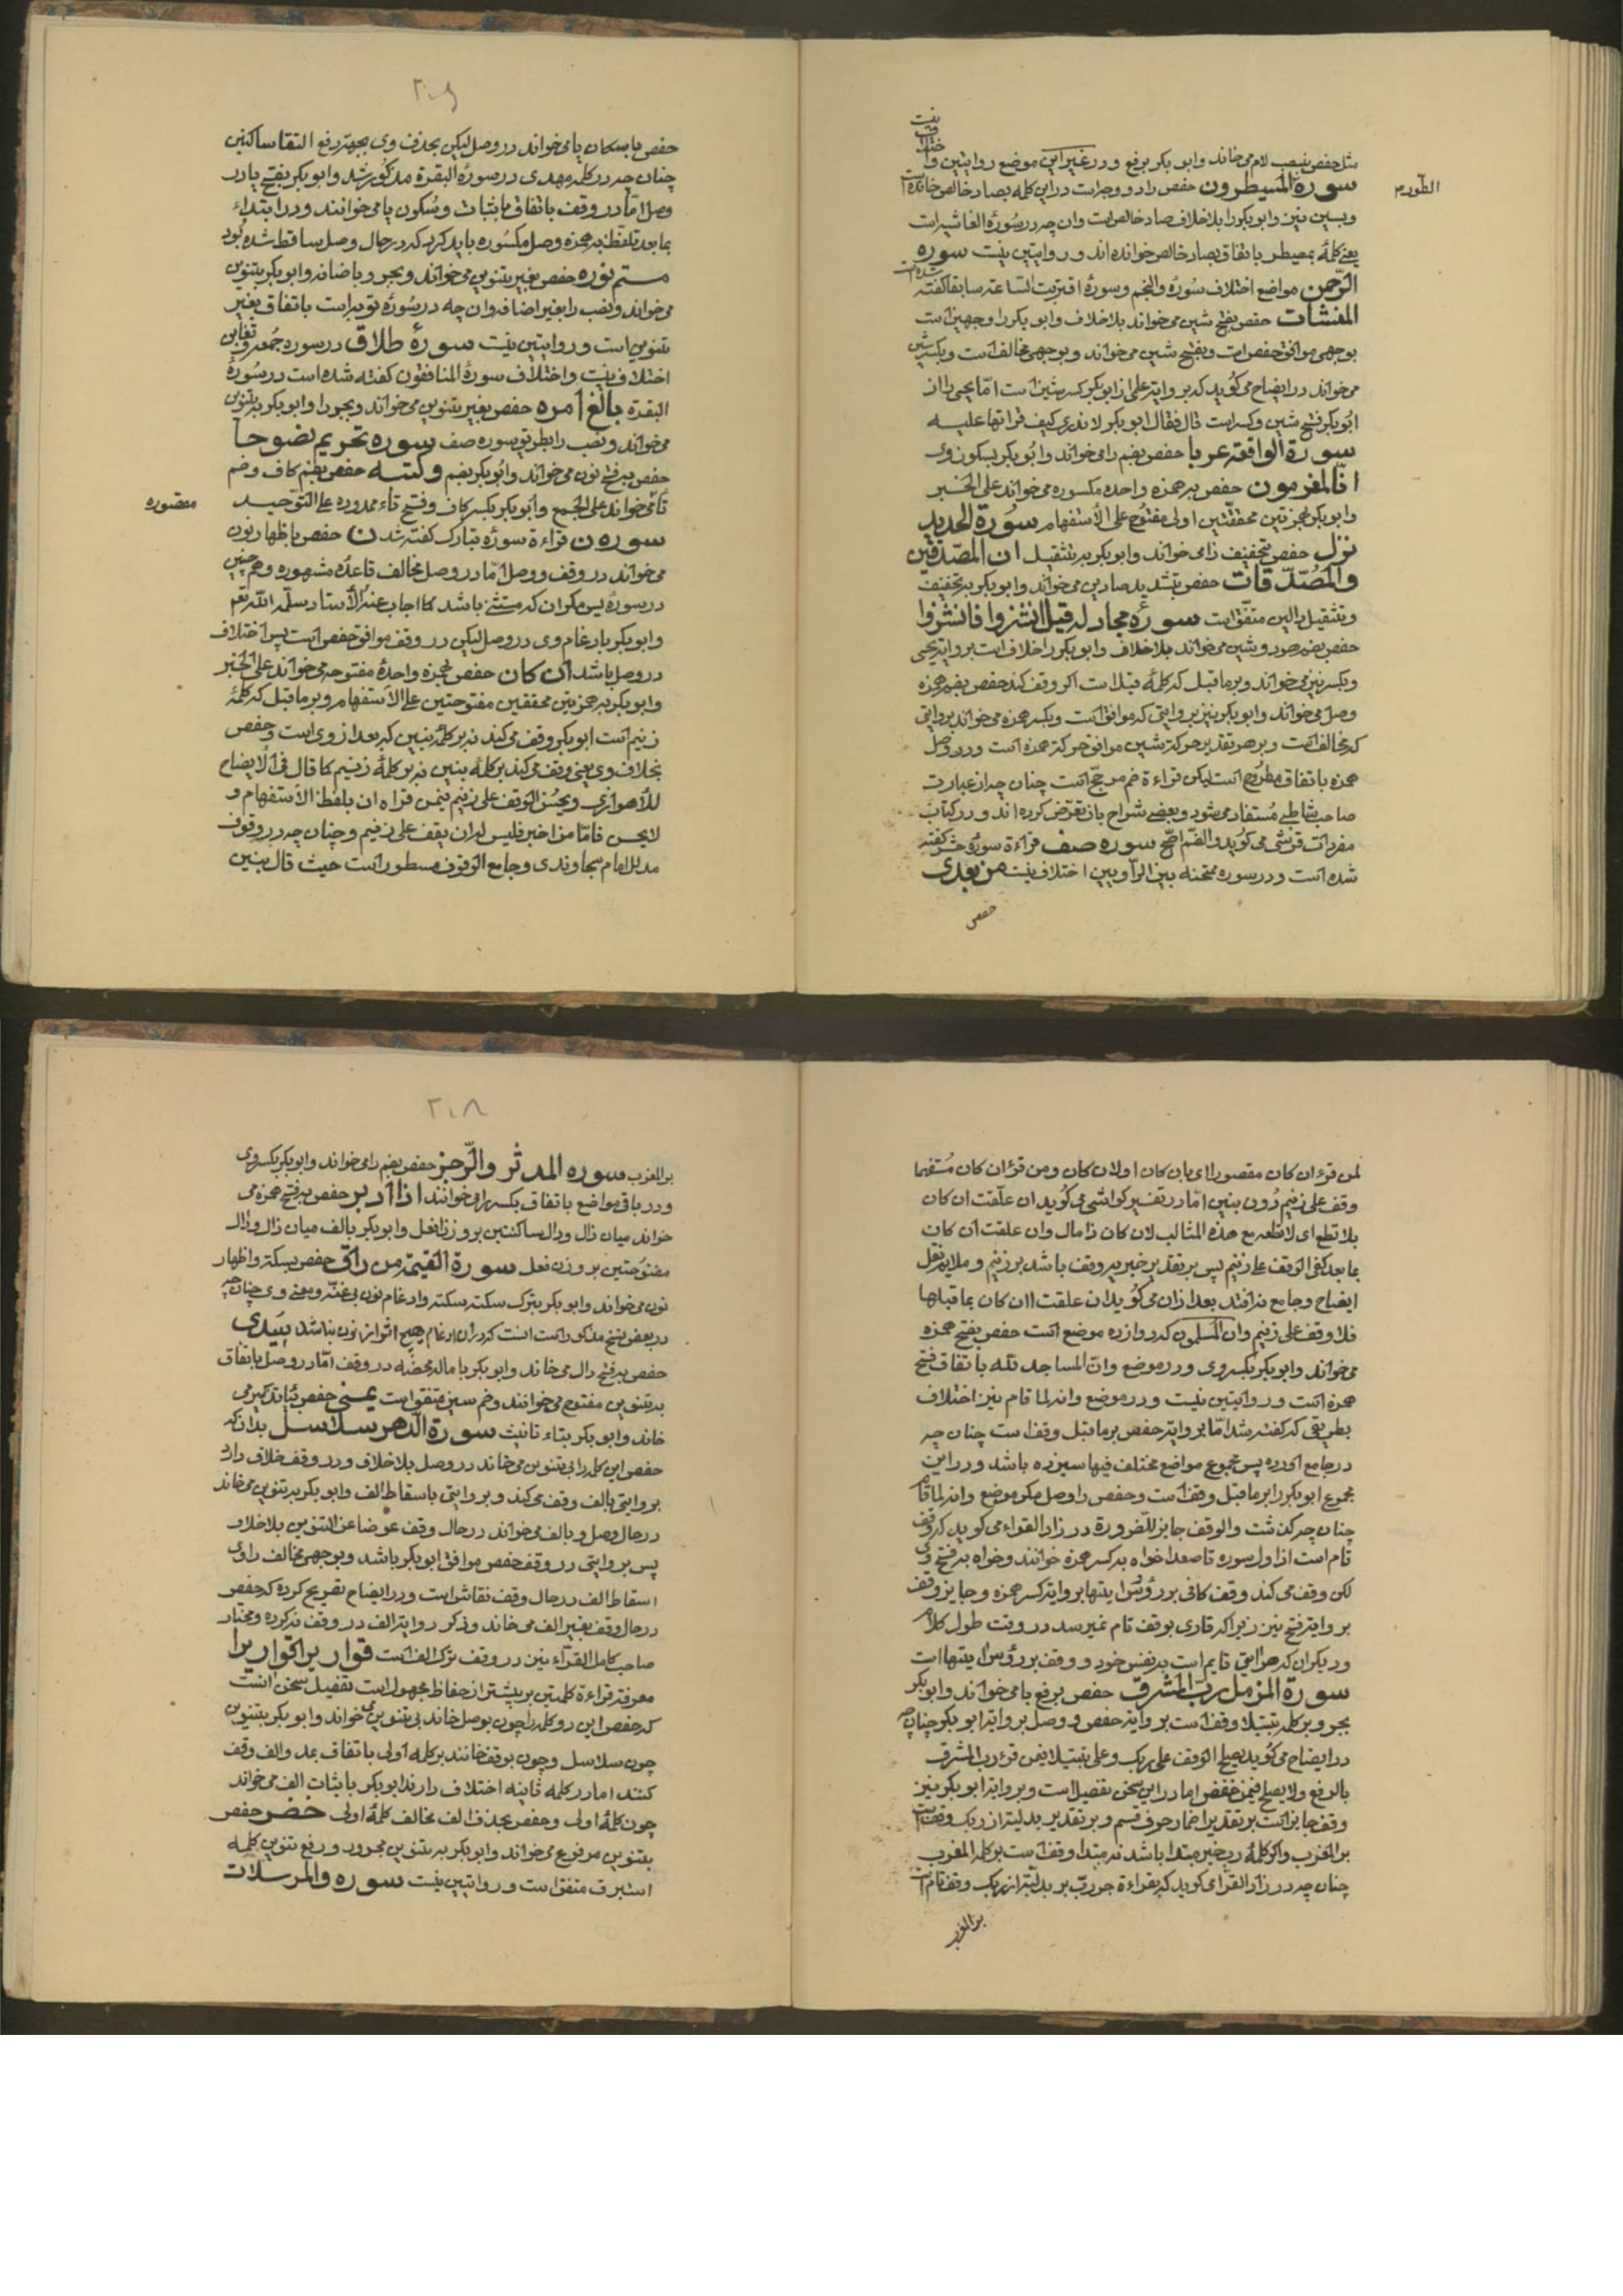 نیست
مثل حفص بنصب لام می خاند وابو بکر برفع ودر غیر این موضع روایتین و
الطور
سورة المسیطرون حفص را دو وجه است در این کلمه بصاد خالص خوانده است
وبسین نیز وابو بکر را بلا خلاف صاد خالص است وان چه در سورة الغاشیه است
یعنی کلمۀ بمصیطر باتفاق بصاد خالص خوانده اند وروایتین نیست سوره
الرّحمن مواضع اختلاف سورة والنجم وسورة اقتربت الساعة سابقا کفته شده است
المنشآت حفص بفتح شین می خواند بلا خلاف وابو بکر را وجهین است
بوجهی موافق حفص است وبفتح شین می خواند وبوجهی مخالف است وبکسر شین
می خواند در ایضاح می کوید که بروایة علی از ابو بکر کسر شین است امّا یحیی را از
ابو بکر فتح شین وکسر است قال فقال ابو بکر لا ندری کیف قراتها علیه
سورة الواقعة عربا حفص بضم را می خواند وابو بکر بسکون وی
انّا لمغرمون حفص به همزه واحده مکسوره می خواند علی الخبر
وابو بکر بهمزتین محققتین اولی مفتوح علی الاستفهام سورة الحدید
نزل حفص بتخفیف زا می خواند وابو بکر به تثقیل ان المصّدّقین
والمصّدّقات حفص بتشدید صادین می خواند وابو بکر به تخفیف
وتثقیل دالین متفق است سوره مجادله قیل انشزوا فانشزوا
حفص بضم هر دو شین می خواند بلا خلاف وابو بکر را خلاف است بروایة یحیی
وبکسر نیز می خواند وبر ما قبل که کلمۀ قیل است اکر وقف کند حفص بضم همزه
وصل می خواند وابو بکر نیز بروایتی که موافق است وبکسر همزه می خواند بروایتی
که مخالف است وبر هر تقدیر حرکة شین موافق حرکة همزه است ودر وصل
همزه باتفاق مطروح است لیکن قراءة ضم مرجح است چنان چه از عبارت
صاحب شاطبی مستفاد می شود وبعضی شراح بان تعرض کرده اند ودر کتاب
مفردات قرشی می کوید والضم اصّح سوره صف قراءة سورة حشر کفته
شده است ودر سوره ممتحنه بین الراویین اختلاف نیست من بعدی
حفص
۲۰۹
حفص باسکان یا می خواند در وصل لیکن بحذف وی بجهة رفع التقا ساکنین
چنان چه در کلمه مهدی در سورة البقرة مذکور شد وابو بکر بفتح یا در
وصل امّا در وقف باتفاق باثبات وسکون یا می خوانند ودر ابتداء
بما بعد تلفظ به همزه وصل مکسوره باید کرد که در حال وصل ساقط شده بود
متم نوره حفص بغیر تنوین می خواند وبجر وباضافه وابو بکر بتنوین
می خواند ونصب را بغیر اضافه وان چه در سورۀ توبه است باتفاق بغیر
تنوین است وروایتین نیست سورۀ طلاق در سوره جمعه وتغابن
اختلاف نیست واختلاف سورة المنافقون کفته شده است در سورة
البقرة بالغ امره حفص بغیر تنوین می خواند وبجر را وابو بکر به تنوین
می خواند ونصب را بطریق سوره صف سوره تحریم نصوحا
حفص به فتح نون می خواند وابو بکر بضم وکتبه حفص بضم کاف وضم
مقصوره
تا می خواند علی الجمع وابو بکر بکسر کاف وفتح تاء ممدوده علی التوحید
سوره ن قراءة سورۀ تبارک کفته شد ن حفص باظهار نون
می خواند در وقف ووصل امّا در وصل مخالف قاعدۀ مشهوره وهم چنین
در سورۀ یس مکر ان که مستثنی باشد کما اجاب عنه الاستاد سلّمه الله تعم
وابو بکر بادغام وی در وصل لیکن در وقف موافق حفص است پس اختلاف
در وصل باشد ان کان حفص بهمزه واحدۀ مفتوحه می خواند علی الخبر
وابو بکر به همزتین محققین مفتوحتین علی الاستفهام وبر ما قبل که کلمۀ
زنیم است ابو بکر وقف می کند نه بر کلمۀ بنین که بعد از وی است وحفص
بخلاف وی یعنی وقف می کند بر کلمۀ بنین نه بر کلمۀ زنیم کما قال فی الایضاح
للاهوازی ویحسن الوقف علی زنیم فیمن قراه ان بلفظ الاستفهام و
لا یحس فامّا من اخبر فلیس له ان یقف علی زنیم وچنان چه در وقوف
مدلل امام سجاوندی وجامع الوقوف مسطور است حیث قال بنین
لمن قرء ان کان مقصورا ای بان کان او لان کان ومن قرء ان کان مستفهما
وقف علی زنیم دون بنین امّا در تفسیر کواشی می کوید ان علّقت ان کان
بلا تطع ای لا تطعه مع هذه المثالب لان کان ذا مال وان علقت ان کان
بما بعد کفی الوقف علی زنیم پس بر تقدیر خبریه وقف باشد بر زنیم وملایم نقل
ایضاح وجامع نه افتد بعد از ان می کوید ان علقت اان کان بما قبلها
فلا وقف علی زنیم وان المسلمون که دوازده موضع است حفص بفتح همزه
می خواند وابو بکر بکسر وی ودر موضع وانّ المساجد لله باتفاق فتح
همزه است وروایتین نیست ودر موضع وانه لما قام نیز اختلاف
بطریقی که کفته شد امّا بروایة حفص بر ما قبل وقف است چنان چه
در جامع آورده پس مجموع مواضع مختلف فیها سیزده باشد ودر این
مجموع ابو بکر را بر ما قبل وقف است وحفص را وصل مکر موضع وانه لما قام
چنان چه کذشت والوقف جایز للضرورة در زاد القراء می کوید که وقف
تام است از اول سوره تا صعدا خواه به کسر همزه خوانند وخواه به فتح وی
لکن وقف می کند وقف کافی بر رؤس ایتها بروایة کسر همزه وجایز وقف
بروایة فتح نیز زیرا که قاری بوقف تام نمیرسد در وقت طول کلام
ودیکر ان که هر ایتی قایم است به نفس خود ووقف بر رؤس ایتها است
سورة المزمل ربّ المشرق حفص برفع با می خواند وابو بکر
بجر وبر کلمه تبتیلا وقف است بروایة حفص ووصل بروایة ابو بکر چنان چه
در ایضاح می کوید یصلح الوقف علی ربک وعلی تبتیلا فیمن قرء رب المشرق
بالرفع ولا یصلح فیمن خفض اما در این سخن تفصیل است وبروایة ابو بکر نیز
وقف جایز است بر تقدیر اضمار حرف قسم وبر تقدیر بدلیة از ربک وقف است
بر المغرب واکر کلمۀ رب خبر مبتدا باشد نه مبتدا وقف است بر کلمه المغرب
چنان چه در زاد القرّا می کوید که بقراءة جر ربّ بر بدلیة از ربک وقف تام است
بر المغرب
۲۰۸
بر المغرب سوره المدثر والرّجز حفص بضم را می خواند وابو بکر بکسر وی
ودر باقی مواضع باتفاق بکسر را می خوانند اذا ادبر حفص به فتح همزه می
خواند میان ذال ودال ساکنین بر وزن افعل وابو بکر بالف میان ذال ودال
مفتوحتین بر وزن فعل سورة القیمة من راق حفص بسکته واظهار
نون می خواند وابو بکر بترک سکته سکته وادغام نون بی غنّه ومعنی وی چنان چه
در بعض نسخ مذکور است انست که در ان ادغام هیچ اثر از نون نباشد سدی
حفص به فتح دال می خاند وابو بکر باماله محضه در وقف امّا در وصل باتفاق
به تنوین مفتوح می خوانند وضم سین متفق است یمنی حفص بیا تذکیر می
خاند وابو بکر بتاء تانیث سورة الدهر سلاسل بدان که
حفص این کلمه را بی تنوین می خاند در وصل بلا خلاف ودر وقف خلاف دارد
بروایتی بالف وقف می کند وبروایتی باسقاط الف وابو بکر به تنوین می خاند
در حال وصل وبالف می خواند در حال وقف عوضا عن التنوین بلا خلاف
پس بروایتی در وقف حفص موافق ابو بکر باشد وبوجهی مخالف راوی
اسقاط الف در حال وقف نقاش است ودر ایضاح تصریح کرده که حفص
در حال وقف بغیر الف می خاند وذکر روایة الف در وقف نه کرده ومختار
صاحب کامل القرّاء نیز در وقف ترک الف است قواریرا قواریرا
معرفة قراءة کلمتین بر بیشتر از حفاظ مجهول است تفصیل سخن انست
که حفص این دو کلمه را چون بوصل خاند بی تنوین می خواند وابو بکر بتنوین
چون سلاسل وچون بوقف خانند بر کلمه اولی باتفاق بمد والف وقف
کنند اما در کلمه ثانیه اختلاف دارند ابو بکر باثبات الف می خواند
چون کلمۀ اولی وحفص بحذف الف مخالف کلمۀ اولی خضر حفص
بتنوین مرفوع می خواند وابو بکر به تنوین مجرور ورفع تنوین کلمه
استبرق متفق است وروایتین نیست سوره والمرسلات